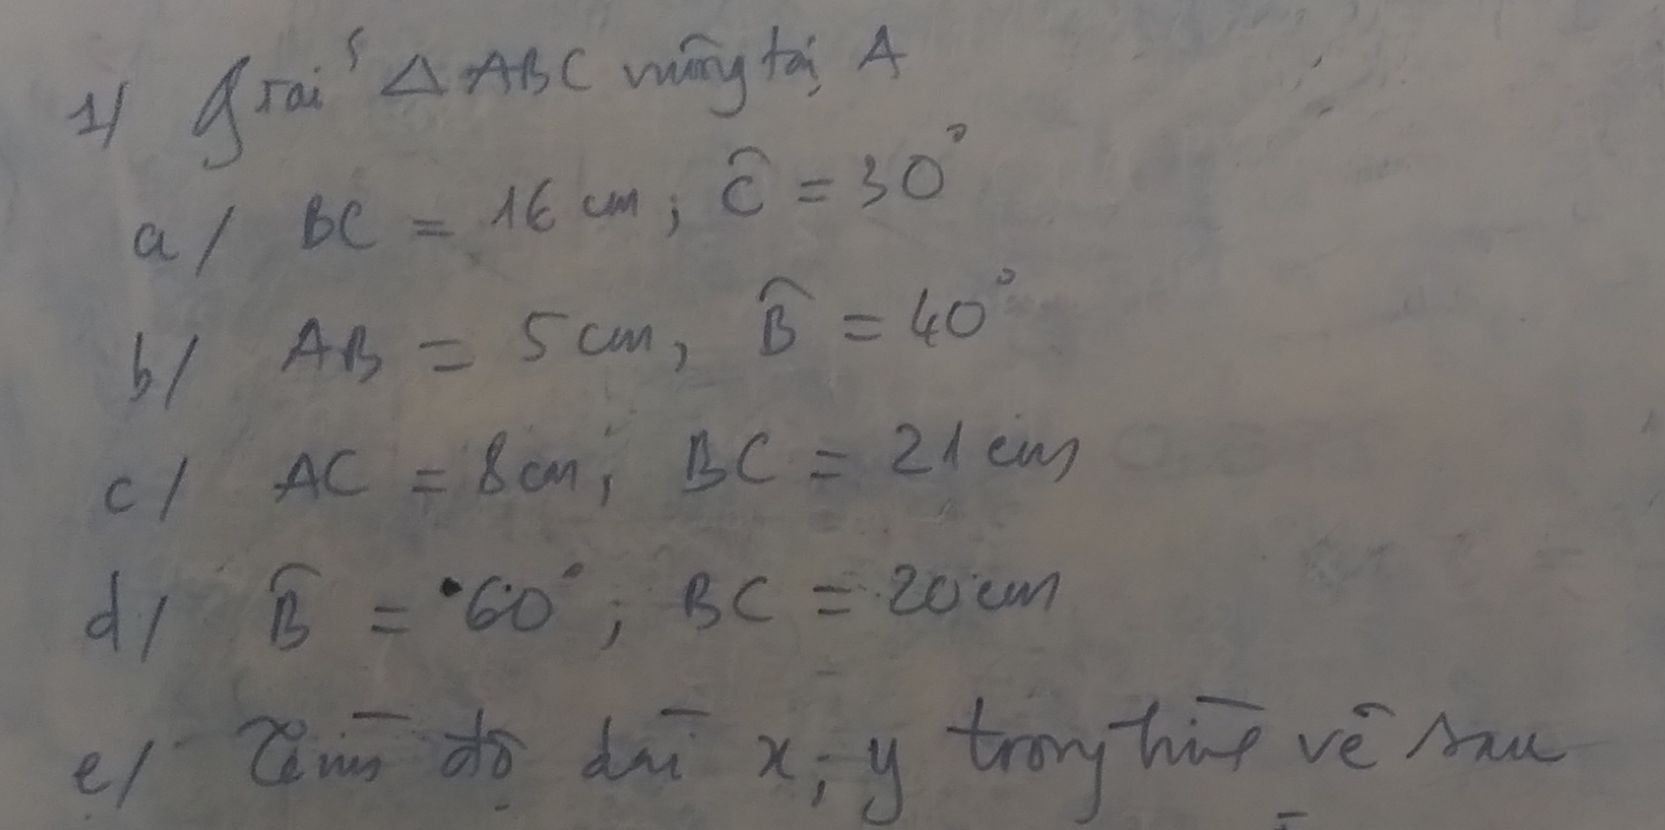 1/ Giải △ABC vuông tại A
a/ BC = 16 cm; Ĉ = 30°
b/ AB = 5 cm, B̂ = 40°
c/ AC = 8cm; BC = 21 cm
d/ B̂ = 60°; BC = 20 cm
e/ Tìm độ dài x; y trong hình vẽ sau